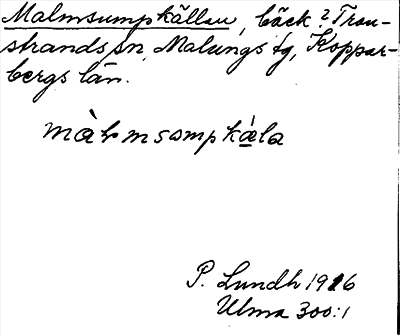 Malmsumpkällan, bäck? Tran-
strands sn, Malungs tg, Koppar-
bergs län.
màƚmsompkæ̀la
P. Lundh 1916
Ulma 300:1